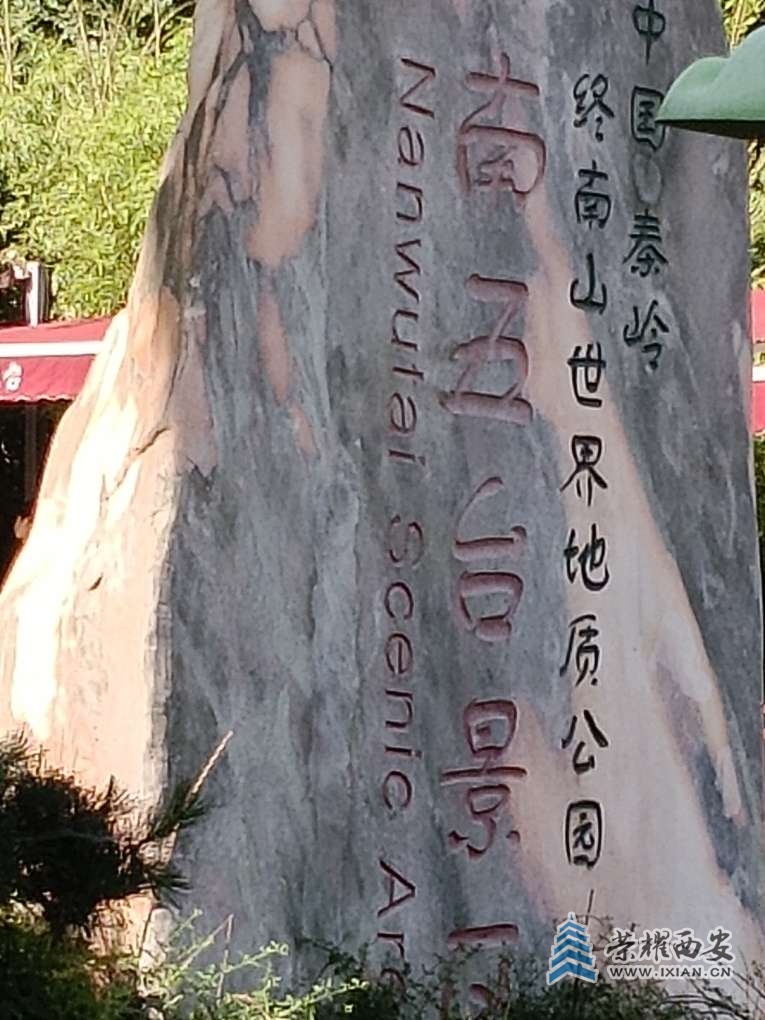 中国秦岭
终南山世界地质公园
南五台景
Nanwutai Scenic Are
台
荣耀西安
WWW.IXIAN.CN